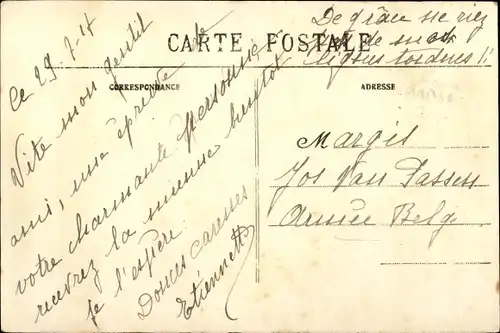 De grâce ne riez
pas de mes
lignes tordues !!
CARTE POSTALE
CORRESPONDANCE
ADRESSE
Ce 29-7-17
Vite mon gentil
ami, une épreuve de
votre charmante personne
recevrez la mienne bientot
je l'espère.
Douces caresses
Etiennette
Margis
Jos Van Passen
Armée Belge